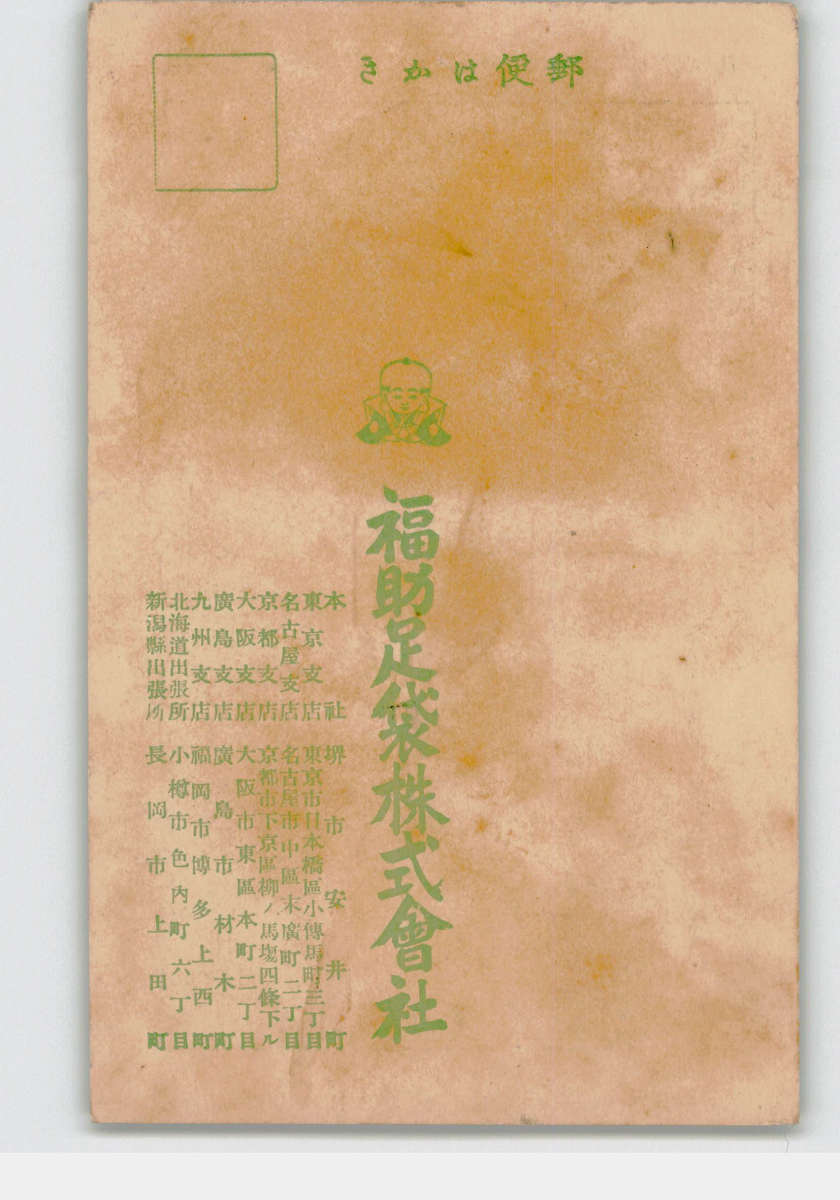 郵便はかき
福助足袋株式會社
本社 堺市安井町
東京支店 東京市日本橋區小傳馬町三丁目
名古屋支店 名古屋市中區末廣町二丁目
京都支店 京都市下京區柳ノ馬塲四條下ル
大阪支店 大阪市東區本町二丁目
廣島支店 廣島市材木町
九州支店 福岡市博多上西町
北海道出張所 小樽市色內町六丁目
新潟縣出張所 長岡市上田町